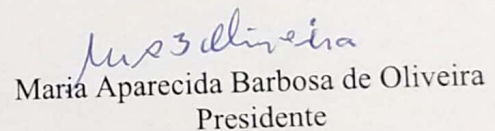 Maria Aparecida Barbosa de Oliveira
Presidente